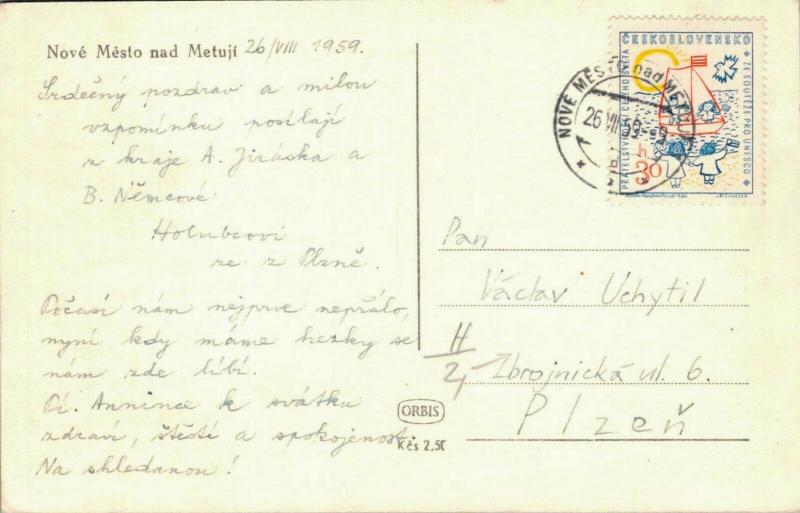 Nové Město nad Metují 26/VIII 1959.
Srdečný pozdrav a milou
vzpomínku posílají
z kraje A. Jiráska a
B. Němcové
Holubcovi
ze z Plzně.
Počasí nám nejprve nepřálo,
nyní kdy máme hezky se
nám zde líbí.
Pí. Annince k svátku
zdraví, štěstí a spokojenost.
Na shledanou!
ORBIS
Kčs 2,50
ČESKOSLOVENSKO
PŘÁTELSTVÍ CELÉHO SVĚTA
ZE SOUTĚŽE PRO UNESCO
30 h
NOVÉ MĚSTO nad METUJÍ
26 VIII 59
Pan
Václav Uchytil
II/2
Zbrojnická ul. 6.
Plzeň